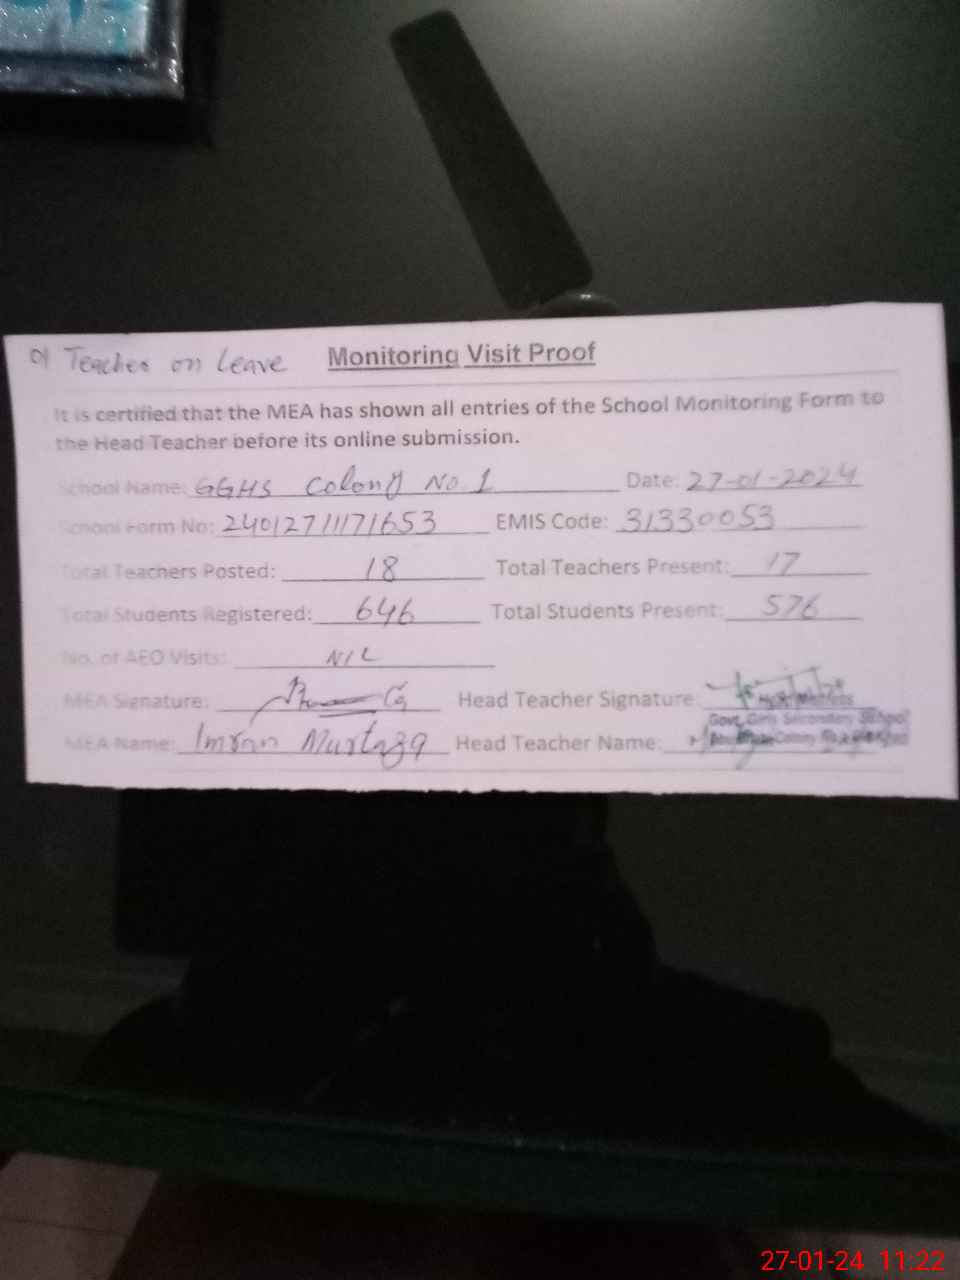 01 Teacher on Leave Monitoring Visit Proof
It is certified that the MEA has shown all entries of the School Monitoring Form to
the Head Teacher before its online submission.
School Name: GGHS Colony No. 1 Date: 27-01-2024
School Form No: 24012711171653 EMIS Code: 31330053
Total Teachers Posted: 18 Total Teachers Present: 17
Total Students Registered: 646 Total Students Present: 576
No. of AEO Visits: NIL
MEA Signature: Head Teacher Signature:
Govt. Girls Secondary School
MEA Name: Imran Murtaza Head Teacher Name:
Colony
27-01-24 11:22